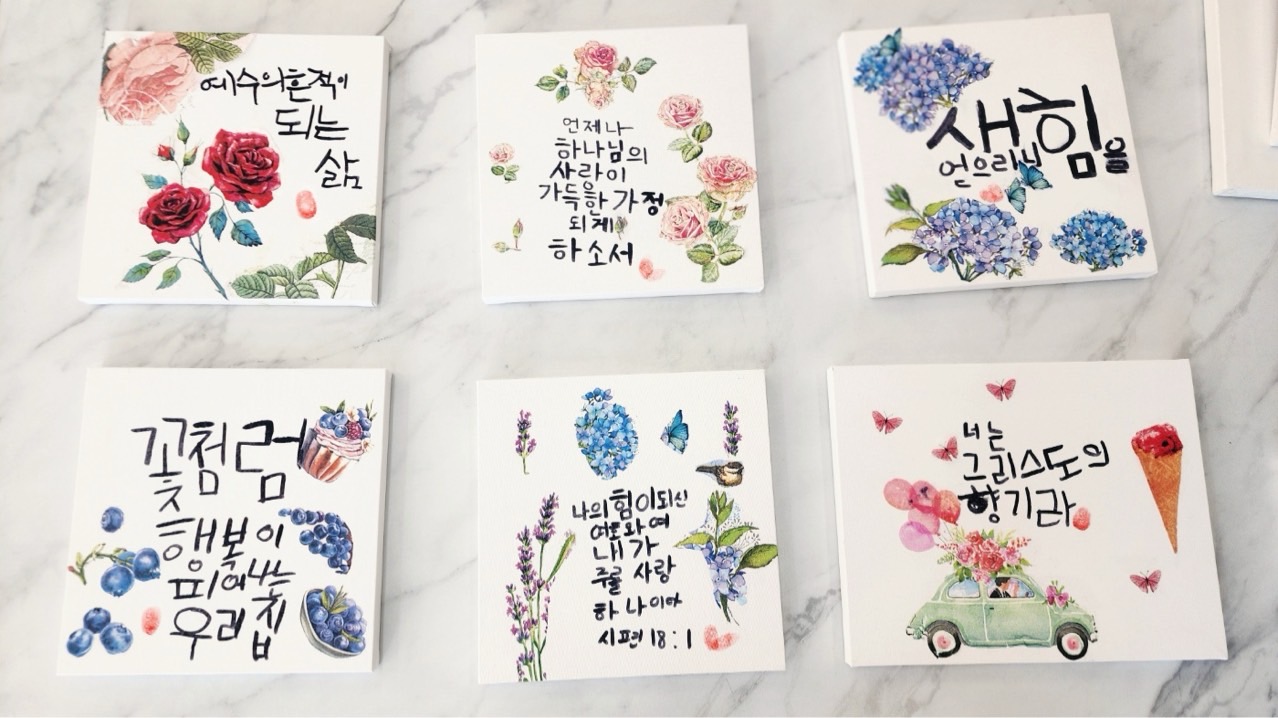 예수의흔적이
되는
삶
언제나
하나님의
사랑이
가득을한 가정
되게
하소서
새힘을
얻으리니
꽃첨럼
행복이
피어나는
우리집
나의 힘이되신
여호와여
내가
주를 사랑
하나이다
시편 18:1
너는
그리스도의
향기라